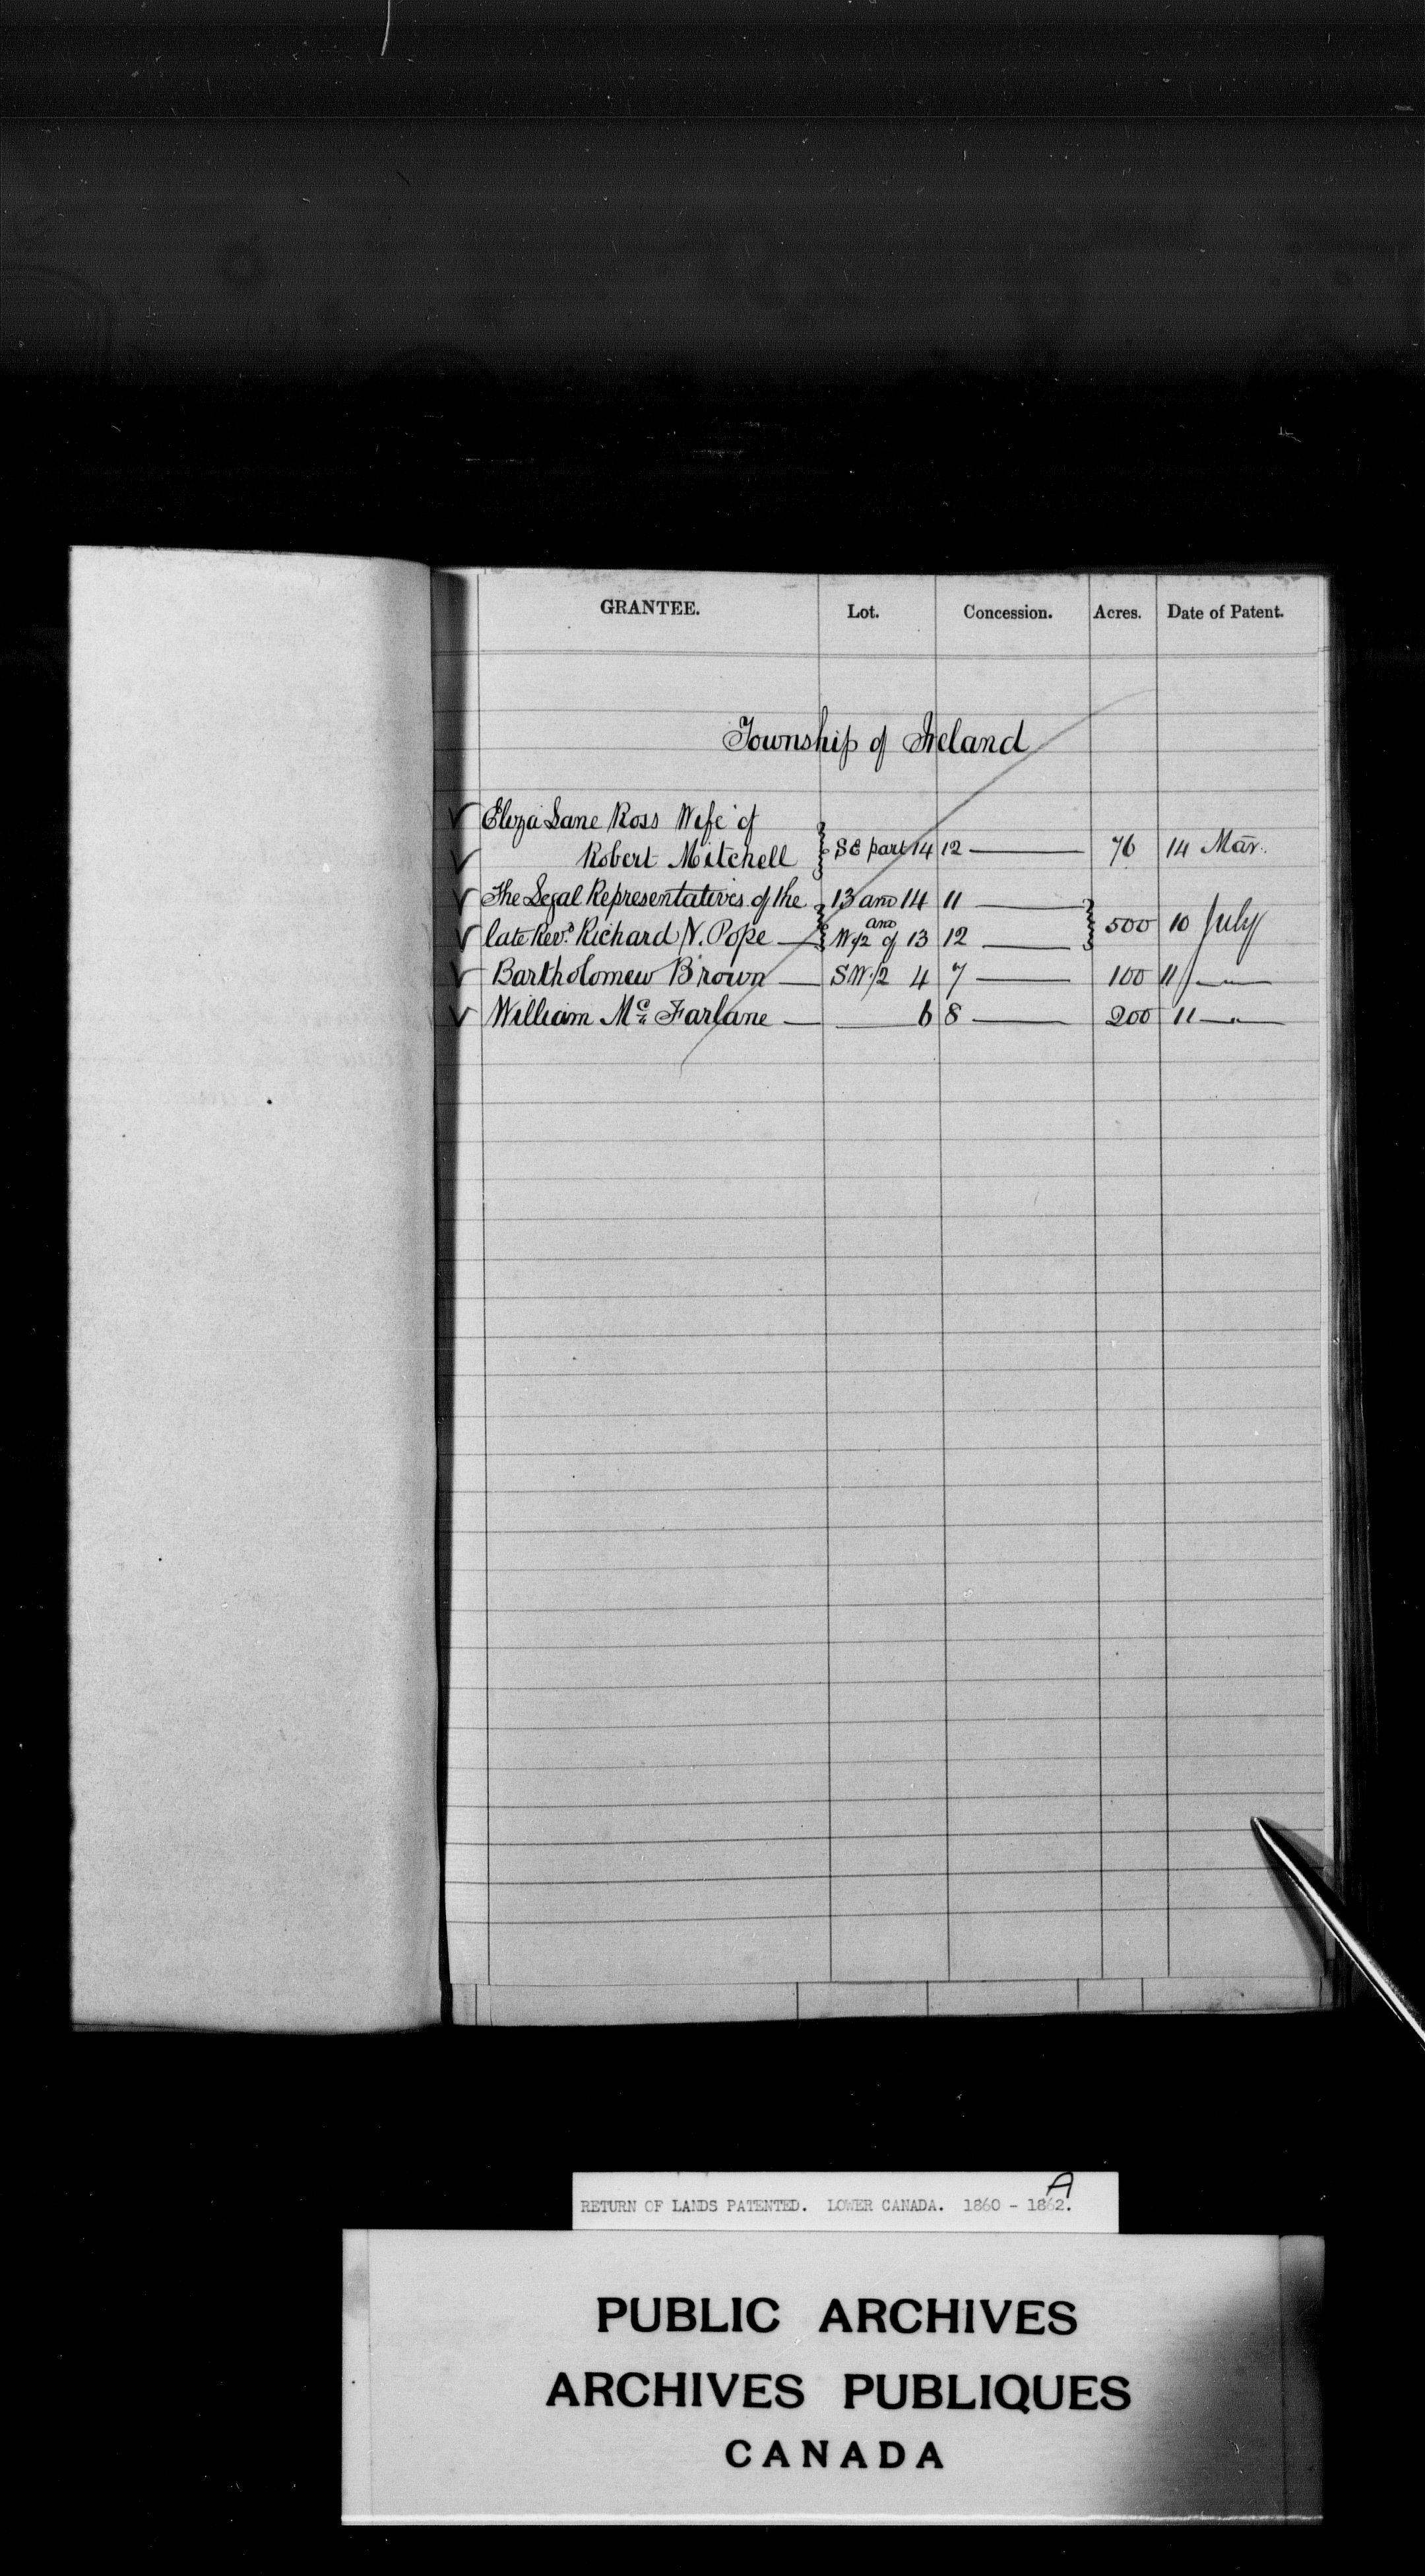 GRANTEE. Lot. Concession. Acres. Date of Patent.
Township of Ireland
Eliza Jane Ross Wife of
Robert Mitchell SE part 14 12 76 14 Mar.
The Legal Representatives of the 13 and 14 11
and
late Revd. Richard N. Pope W 1/2 of 13 12 500 10 July
Bartholomew Brown SW 1/2 4 7 100 11 "
William Mc Farlane 6 8 200 11 "
A
RETURN OF LANDS PATENTED. LOWER CANADA. 1860 - 1862.
PUBLIC ARCHIVES
ARCHIVES PUBLIQUES
CANADA